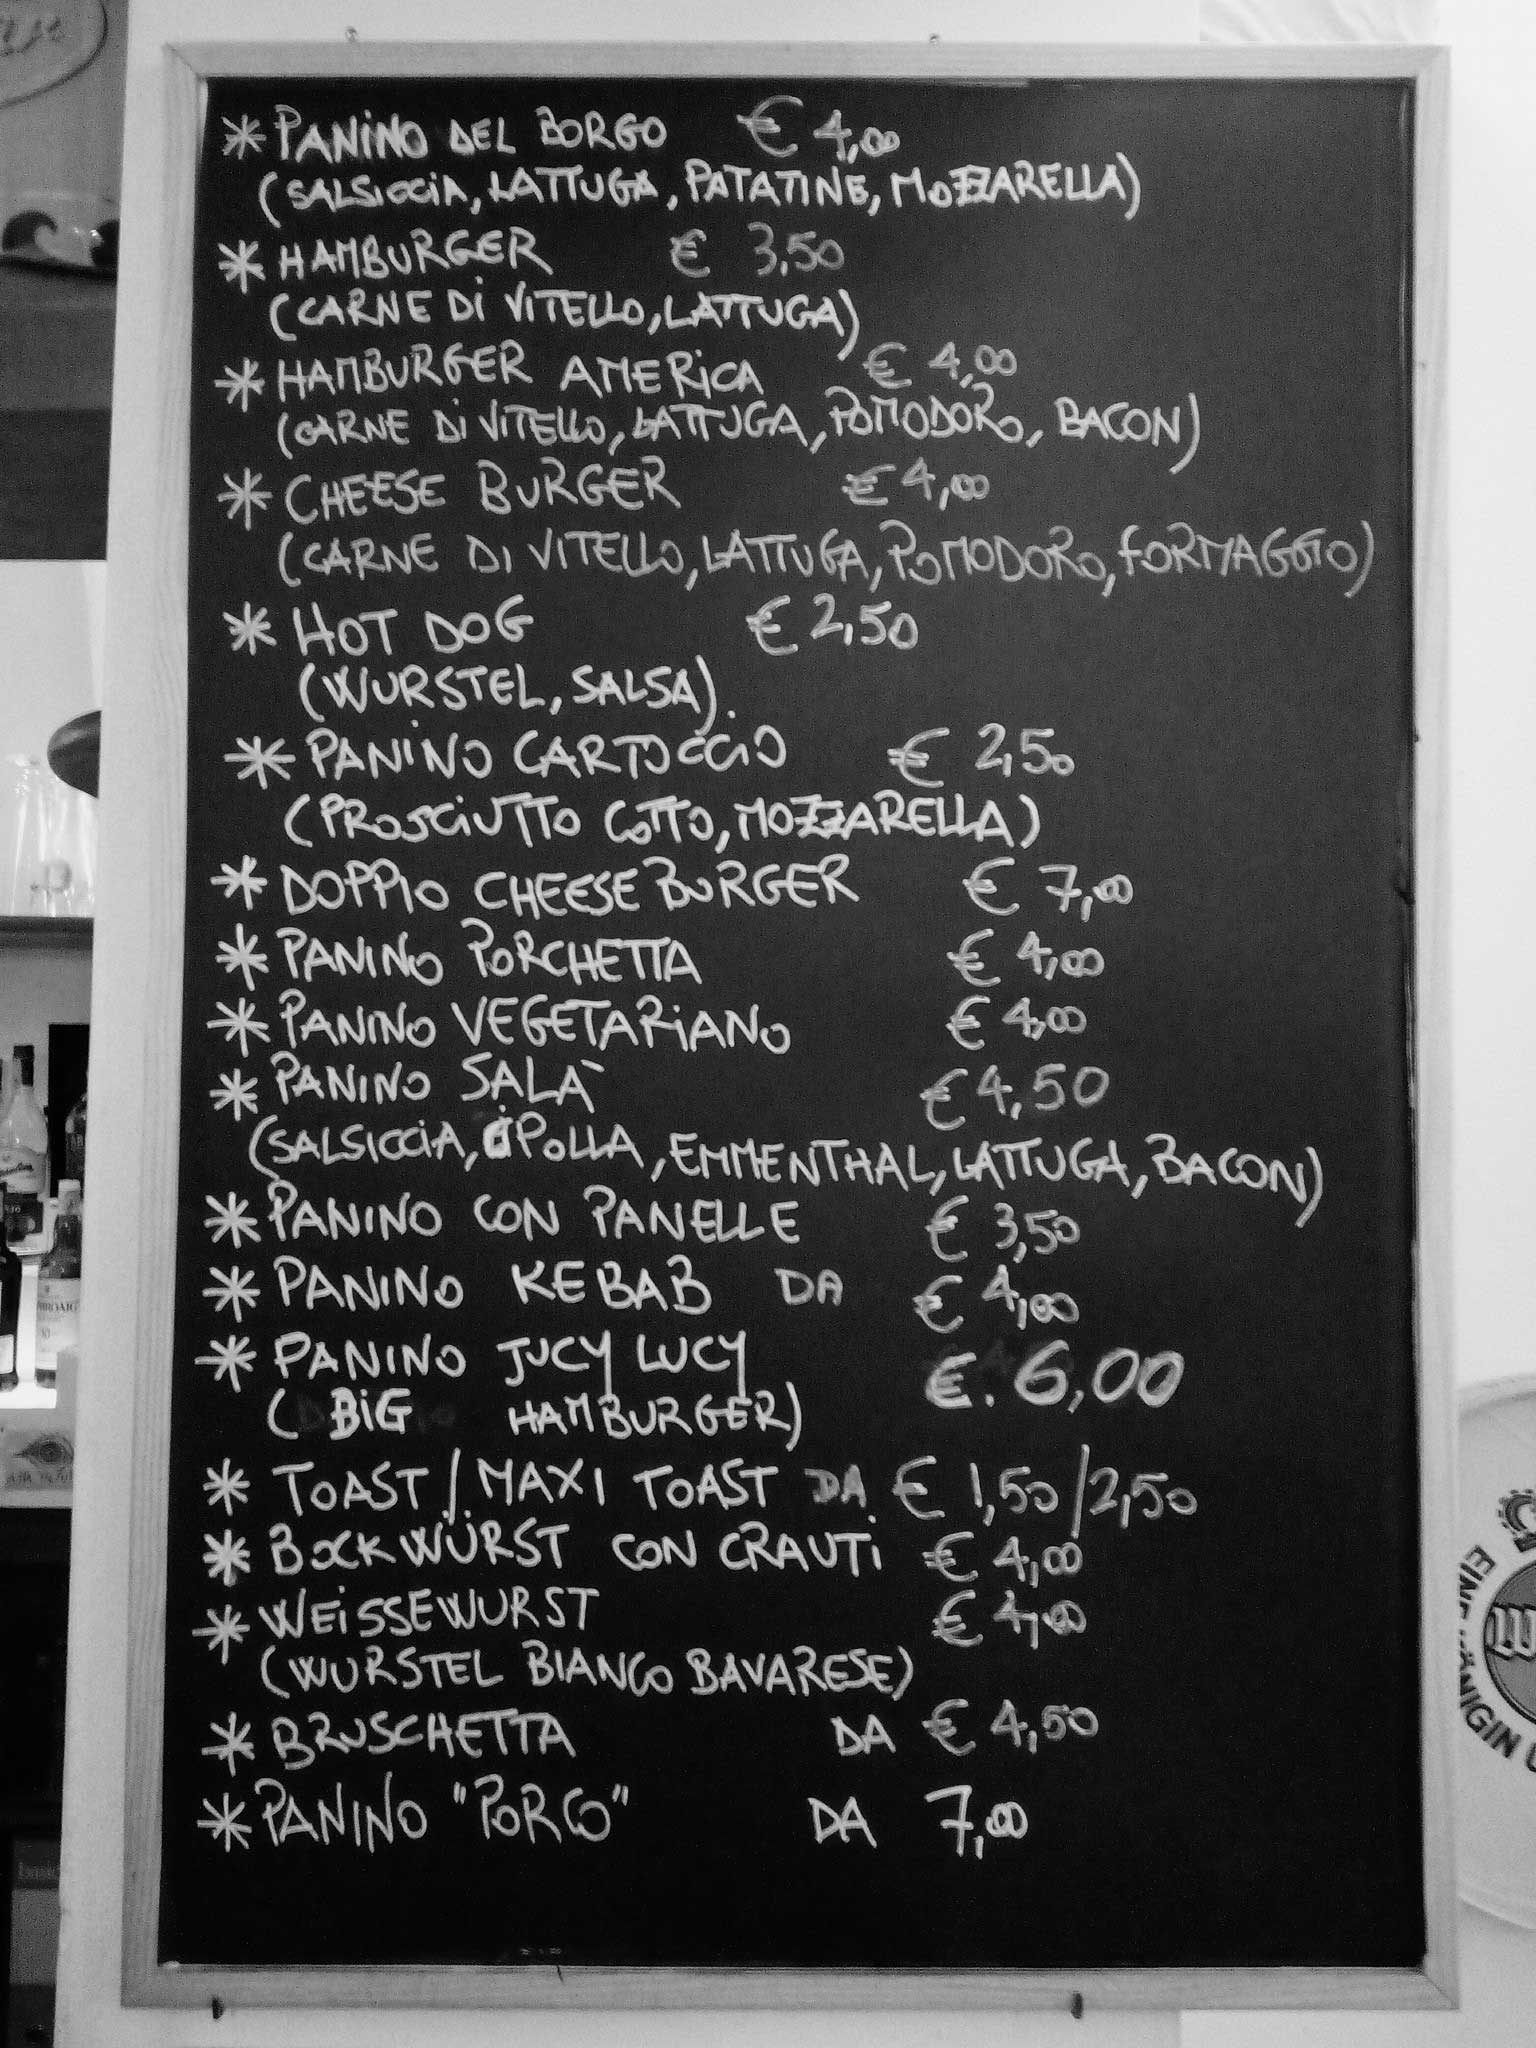 * PANINO DEL BORGO € 4,00
(SALSICCIA, LATTUGA, PATATINE, MOZZARELLA)
* HAMBURGER € 3,50
(CARNE DI VITELLO, LATTUGA)
* HAMBURGER AMERICA € 4,00
(CARNE DI VITELLO, LATTUGA, POMODORO, BACON)
* CHEESE BURGER € 4,00
(CARNE DI VITELLO, LATTUGA, POMODORO, FORMAGGIO)
* HOT DOG € 2,50
(WURSTEL, SALSA).
* PANINO CARTOCCIO € 2,50
(PROSCIUTTO COTTO, MOZZARELLA)
* DOPPIO CHEESE BURGER € 7,00
* PANINO PORCHETTA € 4,00
* PANINO VEGETARIANO € 4,00
* PANINO SALA' € 4,50
(SALSICCIA, CIPOLLA, EMMENTHAL, LATTUGA, BACON)
* PANINO CON PANELLE € 3,50
* PANINO KEBAB DA € 4,00
* PANINO JUCY LUCY €. 6,00
(BIG HAMBURGER)
* TOAST / MAXI TOAST DA € 1,50/2,50
* BOCKWÜRST CON CRAUTI € 4,00
* WEISSEWURST € 4,00
(WURSTEL BIANCO BAVARESE)
* BRUSCHETTA DA € 4,50
* PANINO "PORCO" DA 7,00